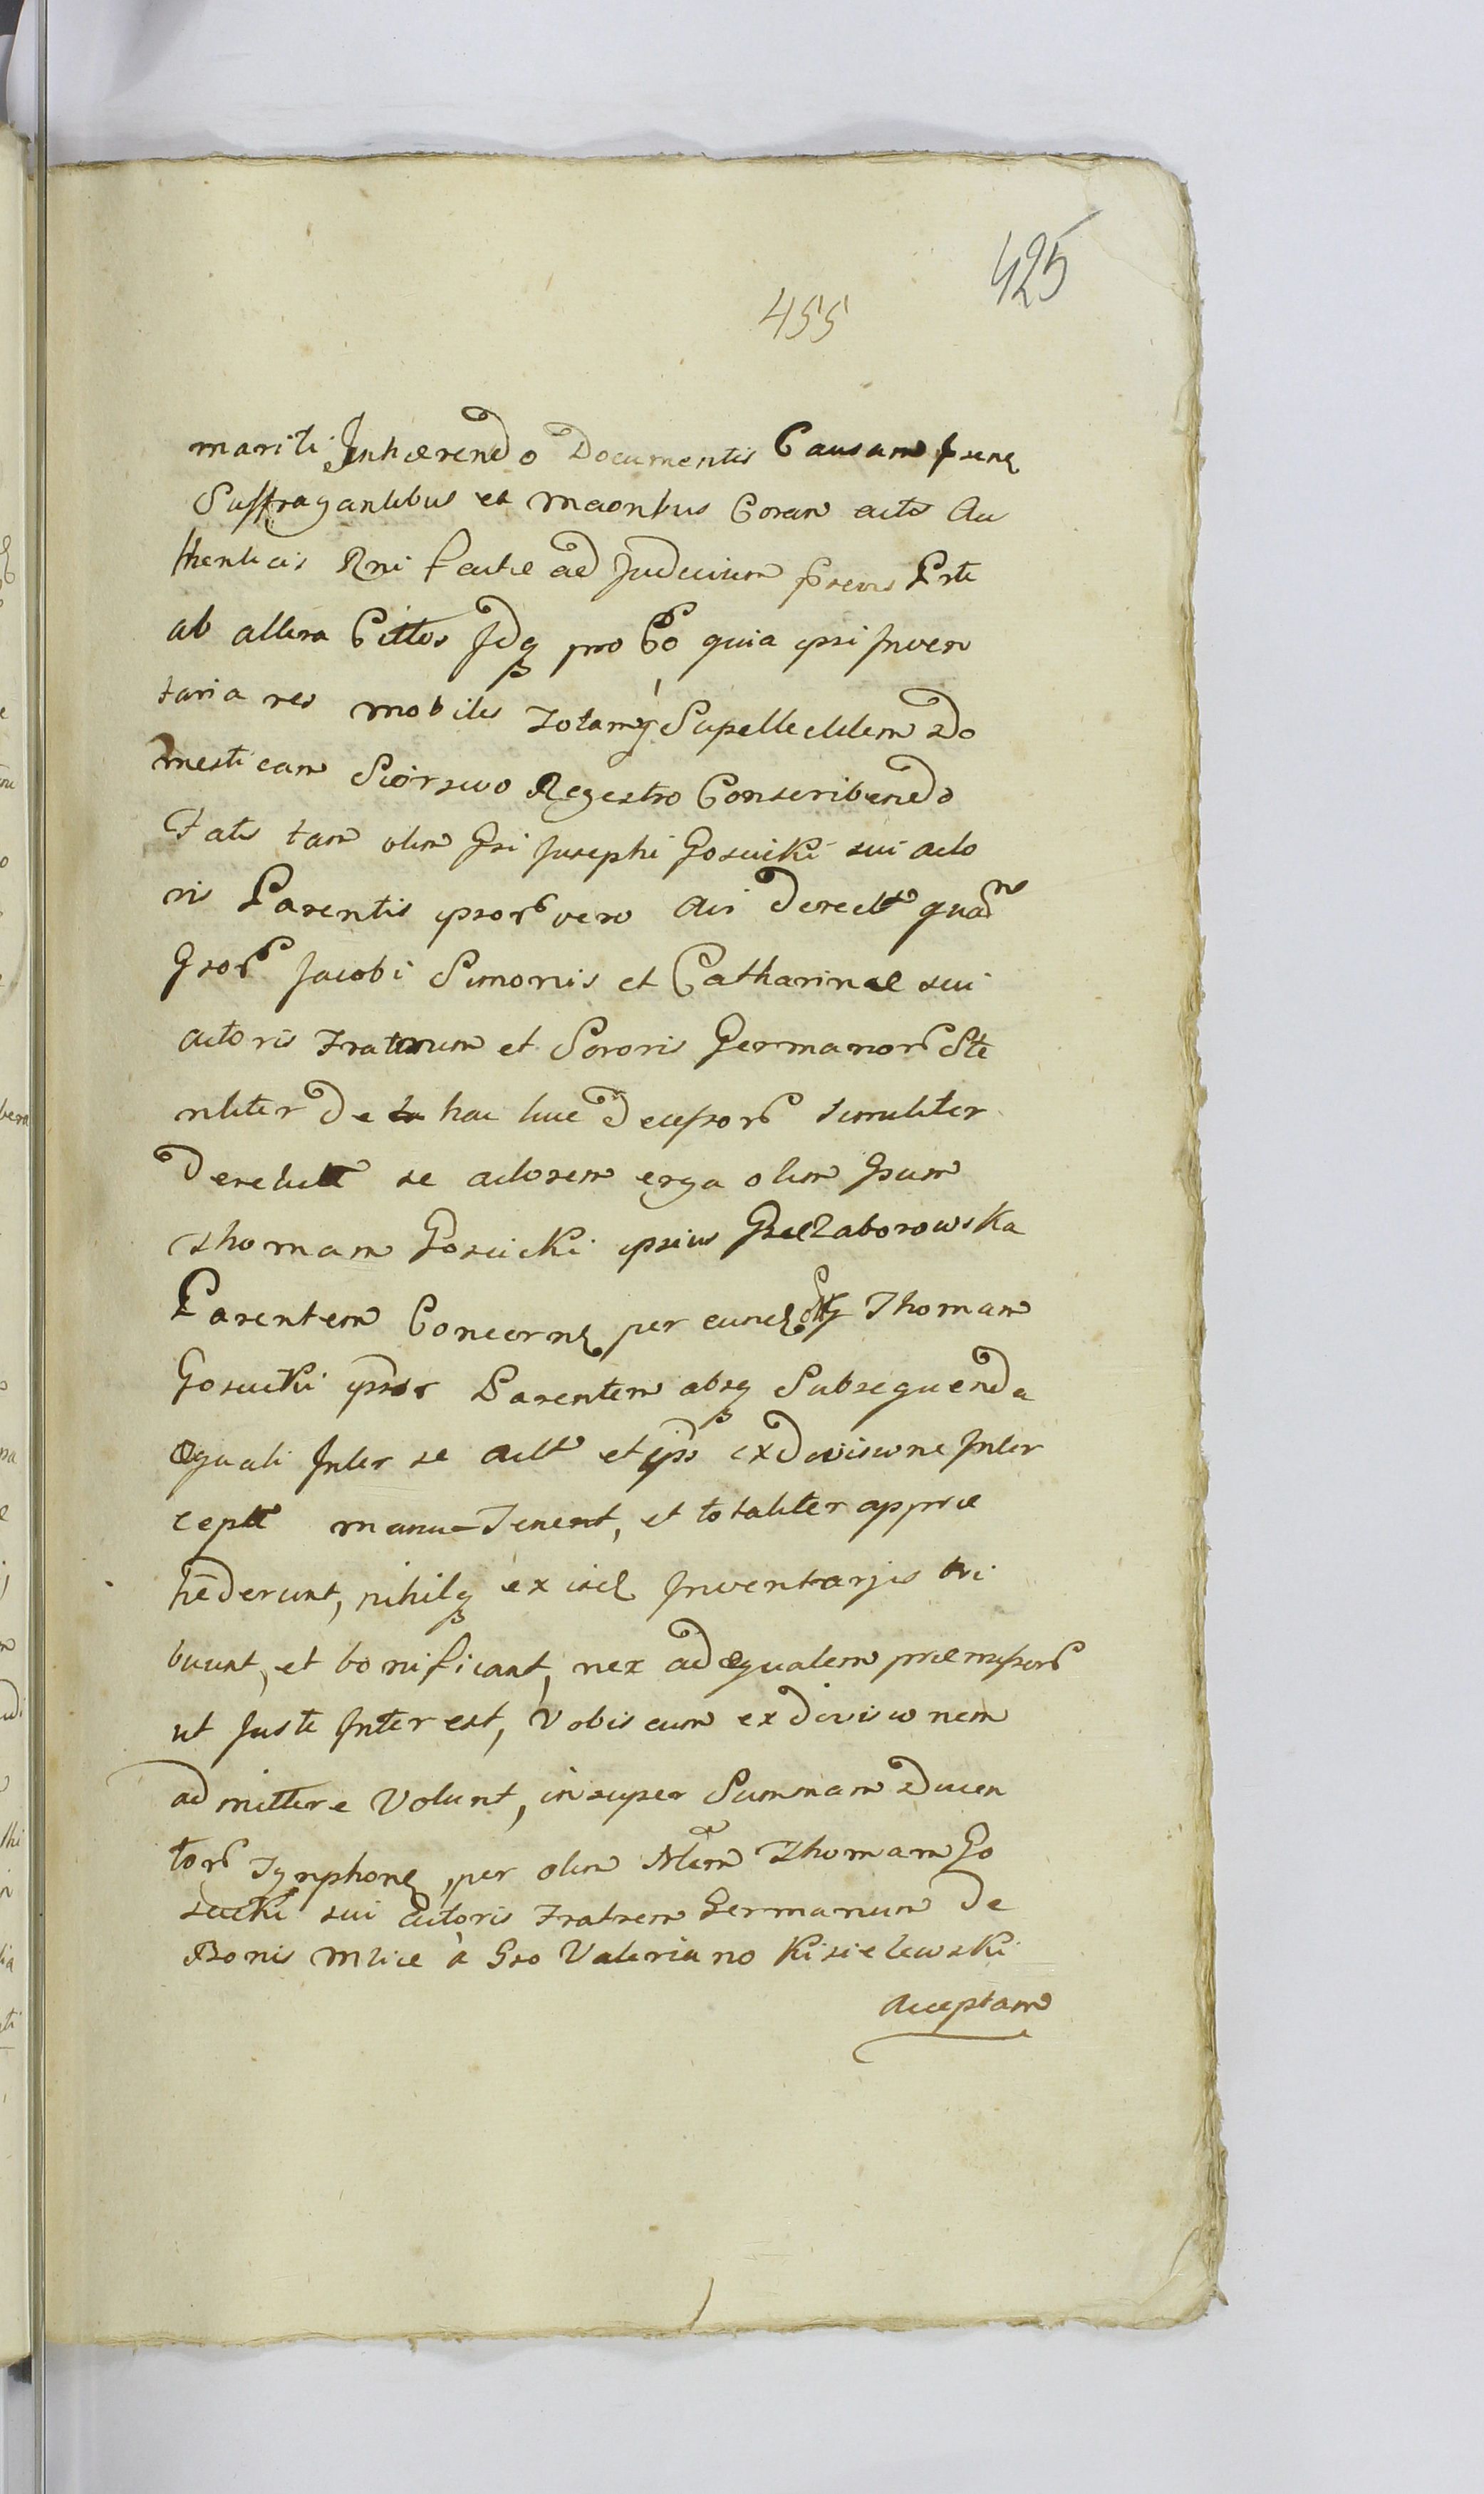 425
455
mariti Inhærendo Documentis Causam psenę
Suffragantibus et maonbus Coram actis Au
thenticis Rni factæ ad Judicium psens Prte
ab altera Cittos Jdq pro Eo quia ipsi Inven
taria res mobiles Totamq Supellectilem Do
mesticam Seorsivo Regestro Conscribendo
tate tam olim Gsi Josephi Gosucki sui acto
ris Parentis ipsor vero Avi Derelt quam
Gsor Jacobi Simonis et Catharinæ sui
actoris Fratrum et Sororis Germanor Ste
riliter de hac luce Decessor Similiter
Derelictt se actorem erga olim Gsum
Thomam Gosucki ipsius Gsæ Zaborowska
Parentem Concernę per eundę Thomam
Gosucki ipsor Parentem absq Subsequenda
æquali Inter se actt et ipss exdivisione Inter
ceptt manu-Tenent, et totaliter appræ
hēderunt, nihilq ex iisd Inventarjis tri
buunt, et bonificant, nex ad æqualem præmissor
ut Juste Interest, Vobiscum exdivisionem
admittere Volunt, insuper Summam Ducen
tor Tynphonę, per olim Nlem Thomam Go
sucki sui actoris Fratrem Germanum de
Bonis Mlice à Gso Valeriano Kisielewski
Acceptam